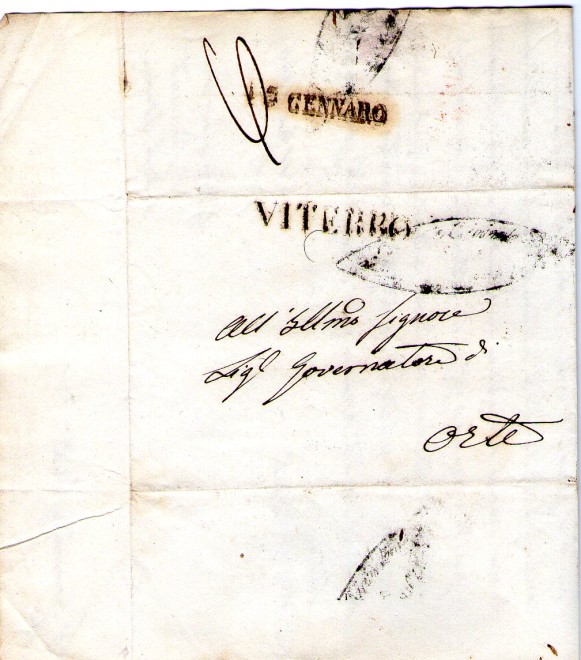 15 GENNARO
VITERBO
All' Illmo Signore
Sigr Governatore di
Orte